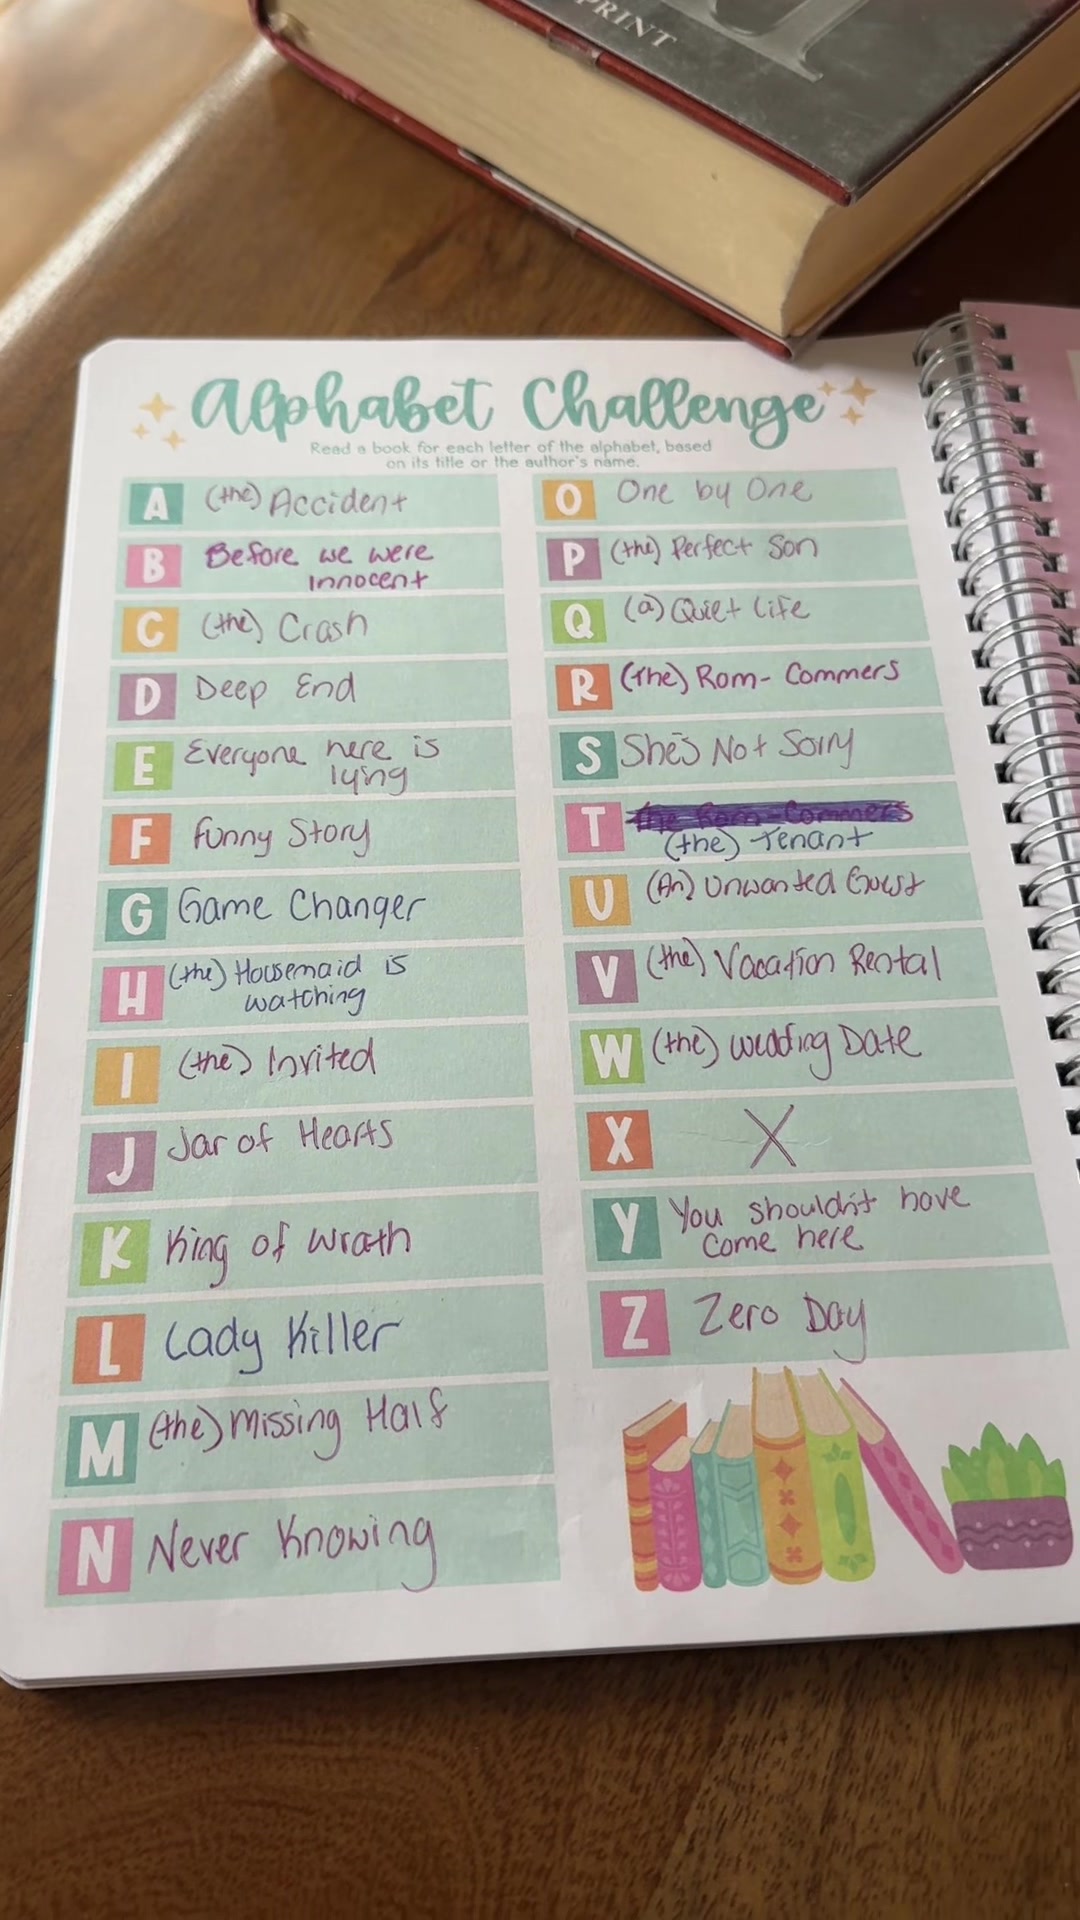 PRINT
Alphabet Challenge
Read a book for each letter of the alphabet, based
on its title or the author's name.
A (the) Accident
B Before we were
innocent
C (the) Crash
D Deep End
E Everyone here is
lying
F Funny Story
G Game Changer
H (the) Housemaid is
watching
I (the) Invited
J Jar of Hearts
K King of Wrath
L Lady Killer
M (the) Missing Half
N Never Knowing
O One by One
P (the) Perfect Son
Q (a) Quiet Life
R (the) Rom-Commers
S She's Not Sorry
T the Rom-Commers
(the) Tenant
U (An) Unwanted Guest
V (the) Vacation Rental
W (the) Wedding Date
X X
Y You shouldn't have
come here
Z Zero Day